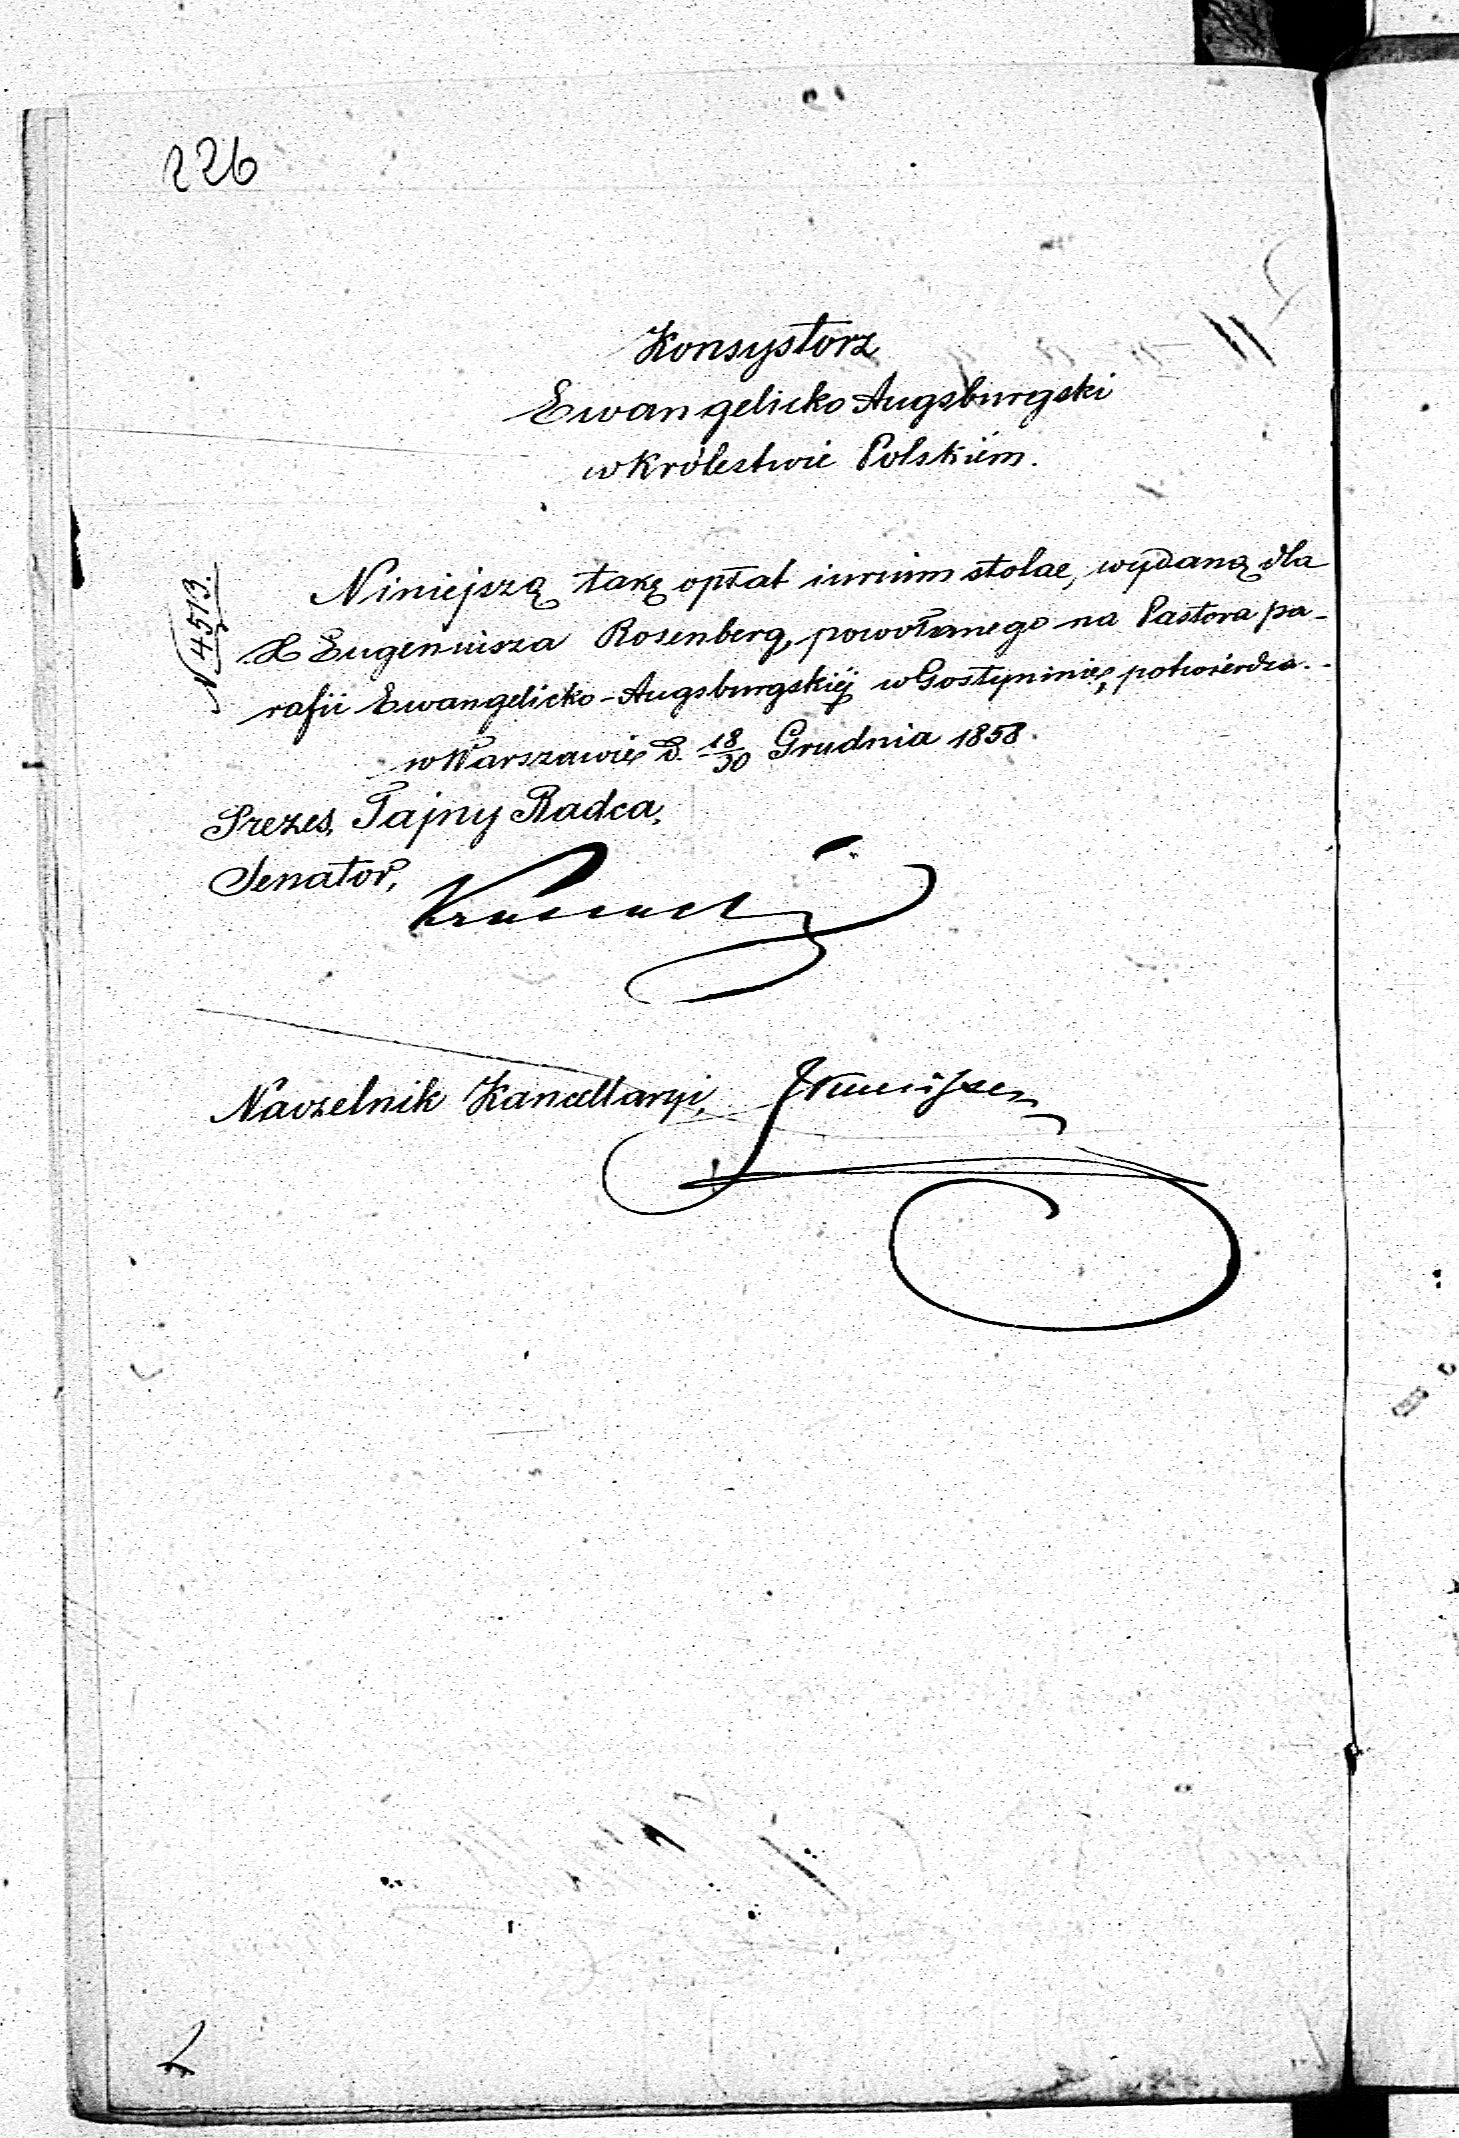 226
Konsystorz
Ewangelicko Augsburgski
w Królestwie Polskiém.
N 4513.
Niniejszą taxę opłat iurium stolae, wydaną dla
X Eugeniusza Rosenberg, powołanego na Pastora pa-
rafii Ewangelicko-Augsburgskiéj w Gostyninie, potwierdza.-
w Warszawie d. 18/30 Grudnia 1858.
Prezes, Tajny Radca,
Senator,
Naczelnik Kancellaryi,